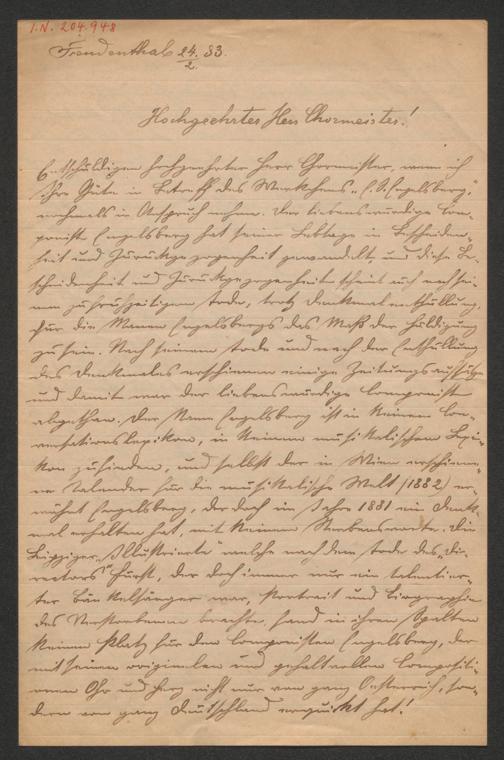 I.N. 204.948
Freudenthal 24./2. 83.
Hochgeehrter Herr Chormeister!
Entschuldigen hochgeehrter Herr Chormeister, wenn ich
Ihre Güte in Betreff des Werkchens „E. S. Engelsberg,"
nochmals in Anspruch nehme. Der liebenswürdige Com-
ponist Engelsberg hat seiner Lebtage in Bescheiden-
heit und Zurückgezogenheit gewandelt, und diese Be-
scheidenheit und Zurückgezogenheit scheint auch nach sei-
nem zu frühzeitigen Tode, trotz Denkmalenthüllung,
für die Manen Engelsbergs das Maß der Huldigung
zu sein. Nach seinem Tode und nach der Enthüllung
des Denkmales erschienen einige Zeitungsaufsätze
und damit war der liebenswürdige Componist
abgethan. Der Name Engelsberg ist in keinem Con-
versationslexikon, in keinem musikalischen Lexi-
kon zu finden, und selbst der in Wien erschiene-
ne Kalender für die musikalische Welt (1882) er-
wähnt Engelsberg, der doch im Jahre 1881 ein Denk-
mal erhalten hat, mit keinem Sterbenswörtchen. Die
Leipziger „Illustrierte" welche nach dem Tode des „Di-
rectors" Fürst, der doch immer nur ein talentier-
ter Bänkelsänger war, Portrait und Biographie
des Verstorbenen brachte, fand in ihren Spalten
keinen Platz für den Componisten Engelsberg, der
mit seinen originalen und gehaltvollen Compositi-
onen Ohr und Herz nicht nur von ganz Oesterreich, son-
dern von ganz Deutschland erquickt hat!